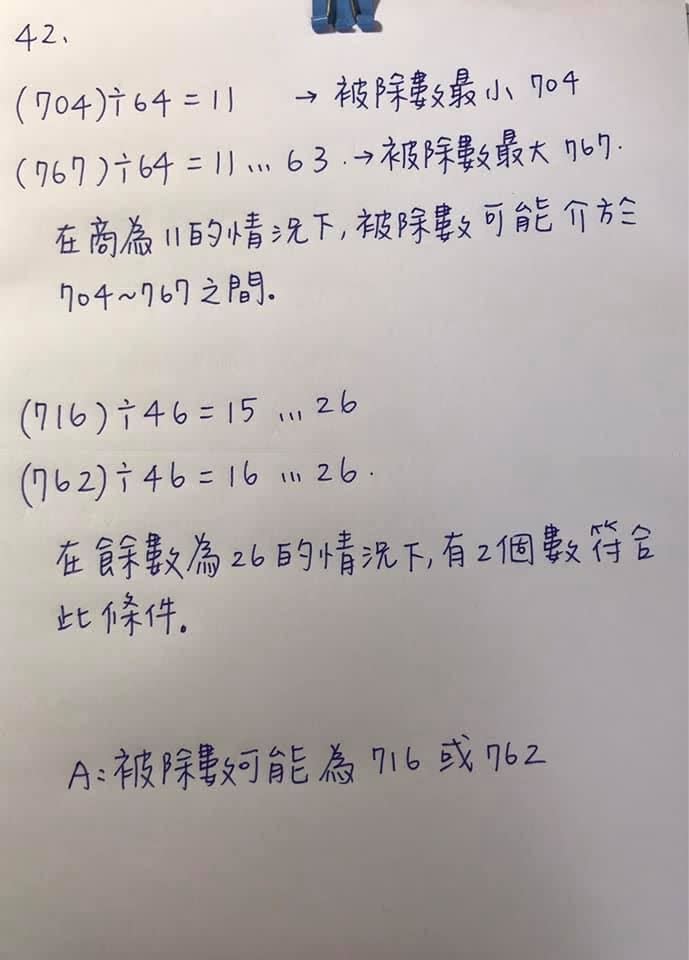 42、
(704)÷64=11 → 被除數最小 704
(767)÷64=11…63.→被除數最大 767.
在商為11的情況下,被除數可能介於
704~767之間。
(716)÷46=15 …26
(762)÷46=16 …26.
在餘數為26的情況下,有2個數符合
此條件。
A:被除數可能為716或762